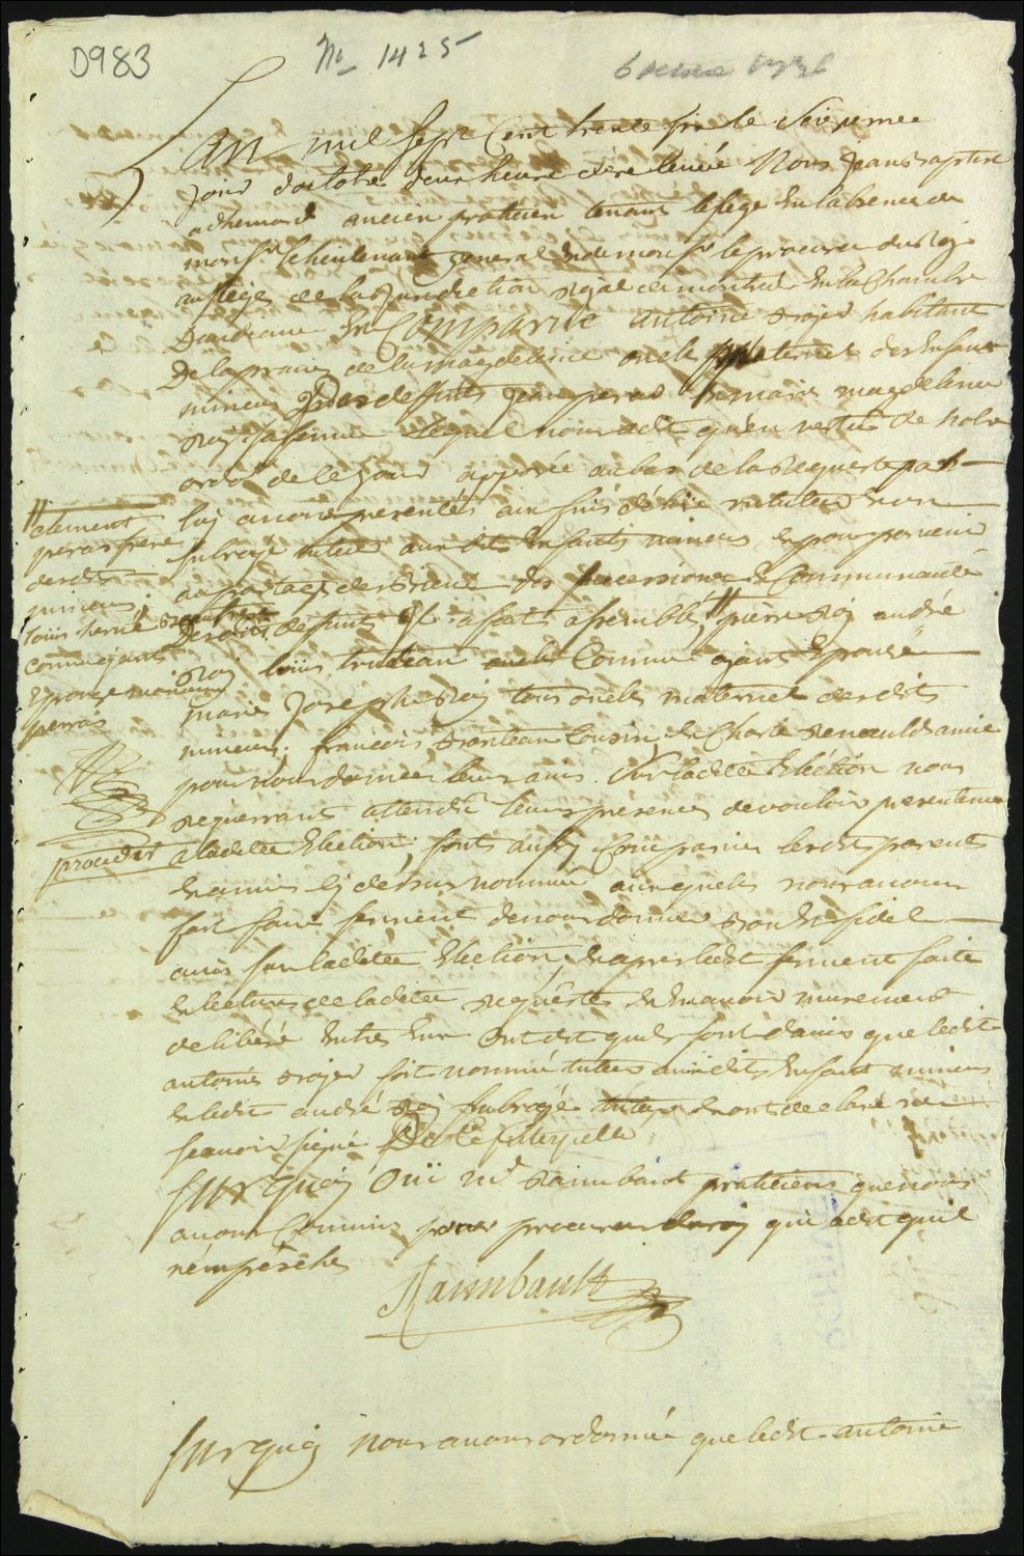 D983
No 1425
6 octobre 1736
L'an mil sept Cent trente six le Sixiemee
jour doctobre deux heure de relevée Nous jean baptiste
adhemard ancien praticien tenant le siege En labsence de
monsr le lieutenant general Et de monsr le procureur du Roy
au siege de la Jurisdiction Royal de montreal En la Chambre
Daudiance Est Comparue antoine Rojer habitant
De la prairie de la magdeleine oncle paternel des Enfans
mineurs Des deffunts jean peras Et marie magdeleine
Roy sa femme lequel nous a dit qu'en vertus de notre
ordce de ce jour apposée au bas de la Requeste par
luy a nous presentés aux fins d'élire un tuteur Et un
subrogé tuteur aux dits Enfants mineurs Et pour parvenir
au partage des Biens Des successions Et Communauté
desdits deffunts Il a fait assemblé // pierre Roy andré
Roy louis trudeau oncle Comme ayant Epousé
marie Josephe Roy tous oncles maternel desdits
mineurs, françois Cousin, Et Charle Renauld amie
pour nous donner leurs avis Sur ladite Election nous
Requerrant attendu leurs presences de vouloir presentement
a ladite Election; sont aussy Comparus lesdits parents
Et amis cy dessus nommé auxquels nous avons
fait faire serment de nous donner bon Et fidel
avis sur ladite Election, Et apres ledt serment faite
Et lecture de ladite Requeste Et En avoir murement
deliberé Entres Eux Ont dit quils sont davis que ledit
antoine Rojer soit nommé tuteur auxdits Enfant mineurs
Et ledit andré Roy subrogé tuteur Et ont declaré ne
scavoir signé De ce Interpellé
Surquoy Ouï me Raimbault praticiens que nous
avons Commis pour procureur du roy qui a dit quil
n'empêche
Raimbault
Surquoy nous avons ordonnée que ledit antoine
// clement
peras frere
desdits
mineurs,
louis hervé
Comme ayant
Epousé
perras
proceder